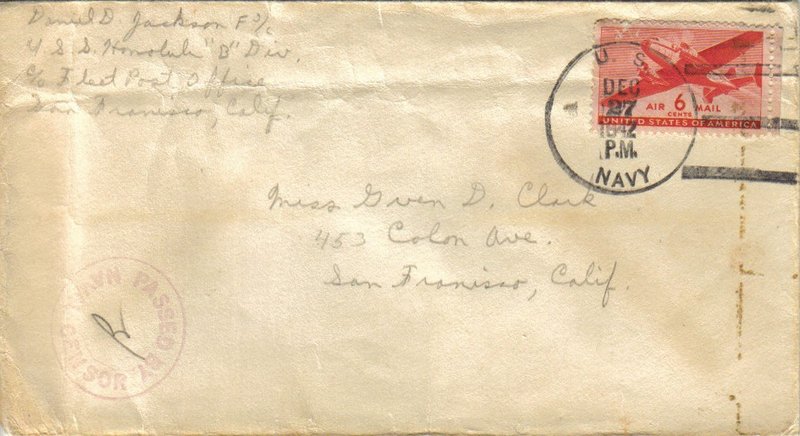 Daniel D. Jackson F 3/c
U S S. Honolulu "B" Div.
c/o Fleet Post Office
San Franisso, Calif.
U. S.
DEC
27
1942
P.M.
NAVY
AIR 6 MAIL
CENTS
UNITED STATES OF AMERICA
Miss Gwen D. Clark
453 Colon Ave.
San Franisso, Calif.
PASSED BY
NAVAL CENSOR